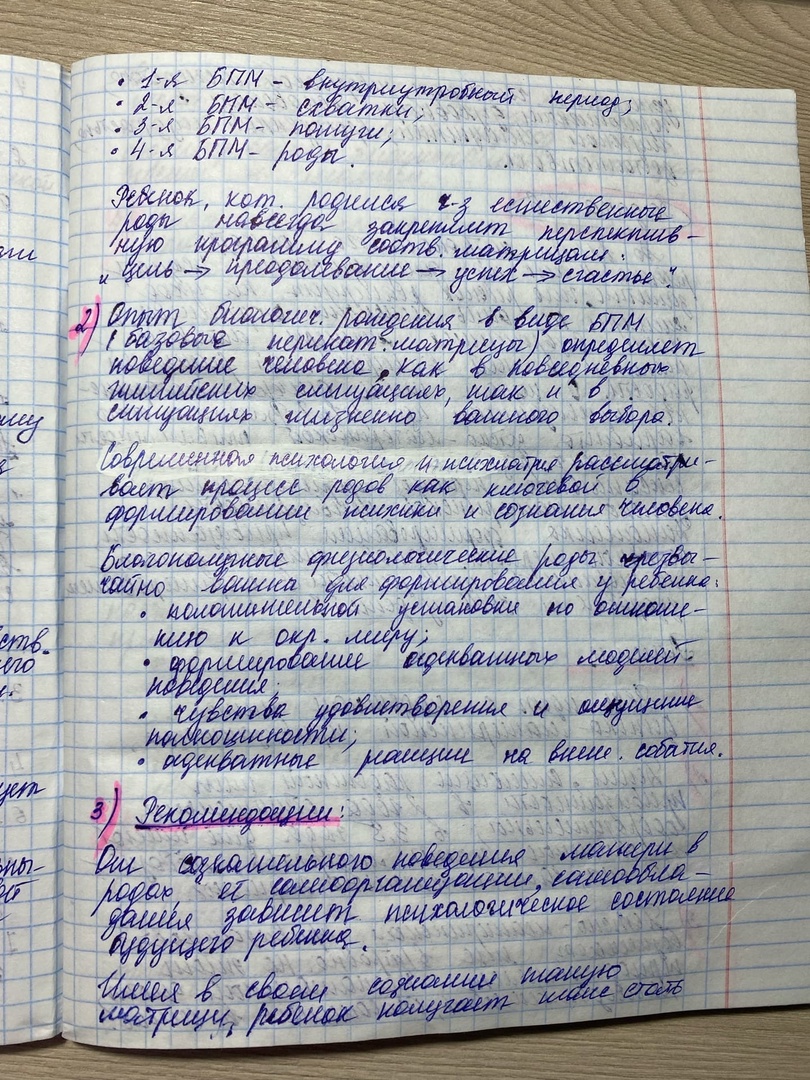 • 1-я БПМ – внутриутробный период;
• 2-я БПМ – схватки;
• 3-я БПМ – потуги;
• 4-я БПМ – роды.
Ребёнок, кот. родился ч-з естественные
роды навсегда закрепляет перспектив-
ную программу собств. матрицам:
„цель → преодолевание → успех → счастье".
2) Опыт биологич. рождения в виде БПМ
(базовые перинат. матрицы) определяет
поведение человека как в повседневных
житейских ситуациях, так и в
ситуациях жизненно важного выбора.
Современная психология и психиатрия рассматри-
вает процесс родов как ключевой в
формировании психики и сознания человека.
Благополучные физиологические роды чрезвы-
чайно важны для формирования у ребёнка:
• положительной установки по отноше-
нию к окр. миру;
• формирование адекватных моделей
поведения;
• чувства удовлетворения и ощущение
полноценности;
• адекватные реакции на внеш. события.
3) Рекомендации:
От сознательного поведения матери в
родах, её самоорганизации, самообла-
дания зависит психологическое состояние
будущего ребёнка.
Имея в своём сознании такую
матрицу, ребёнок получает шанс стать